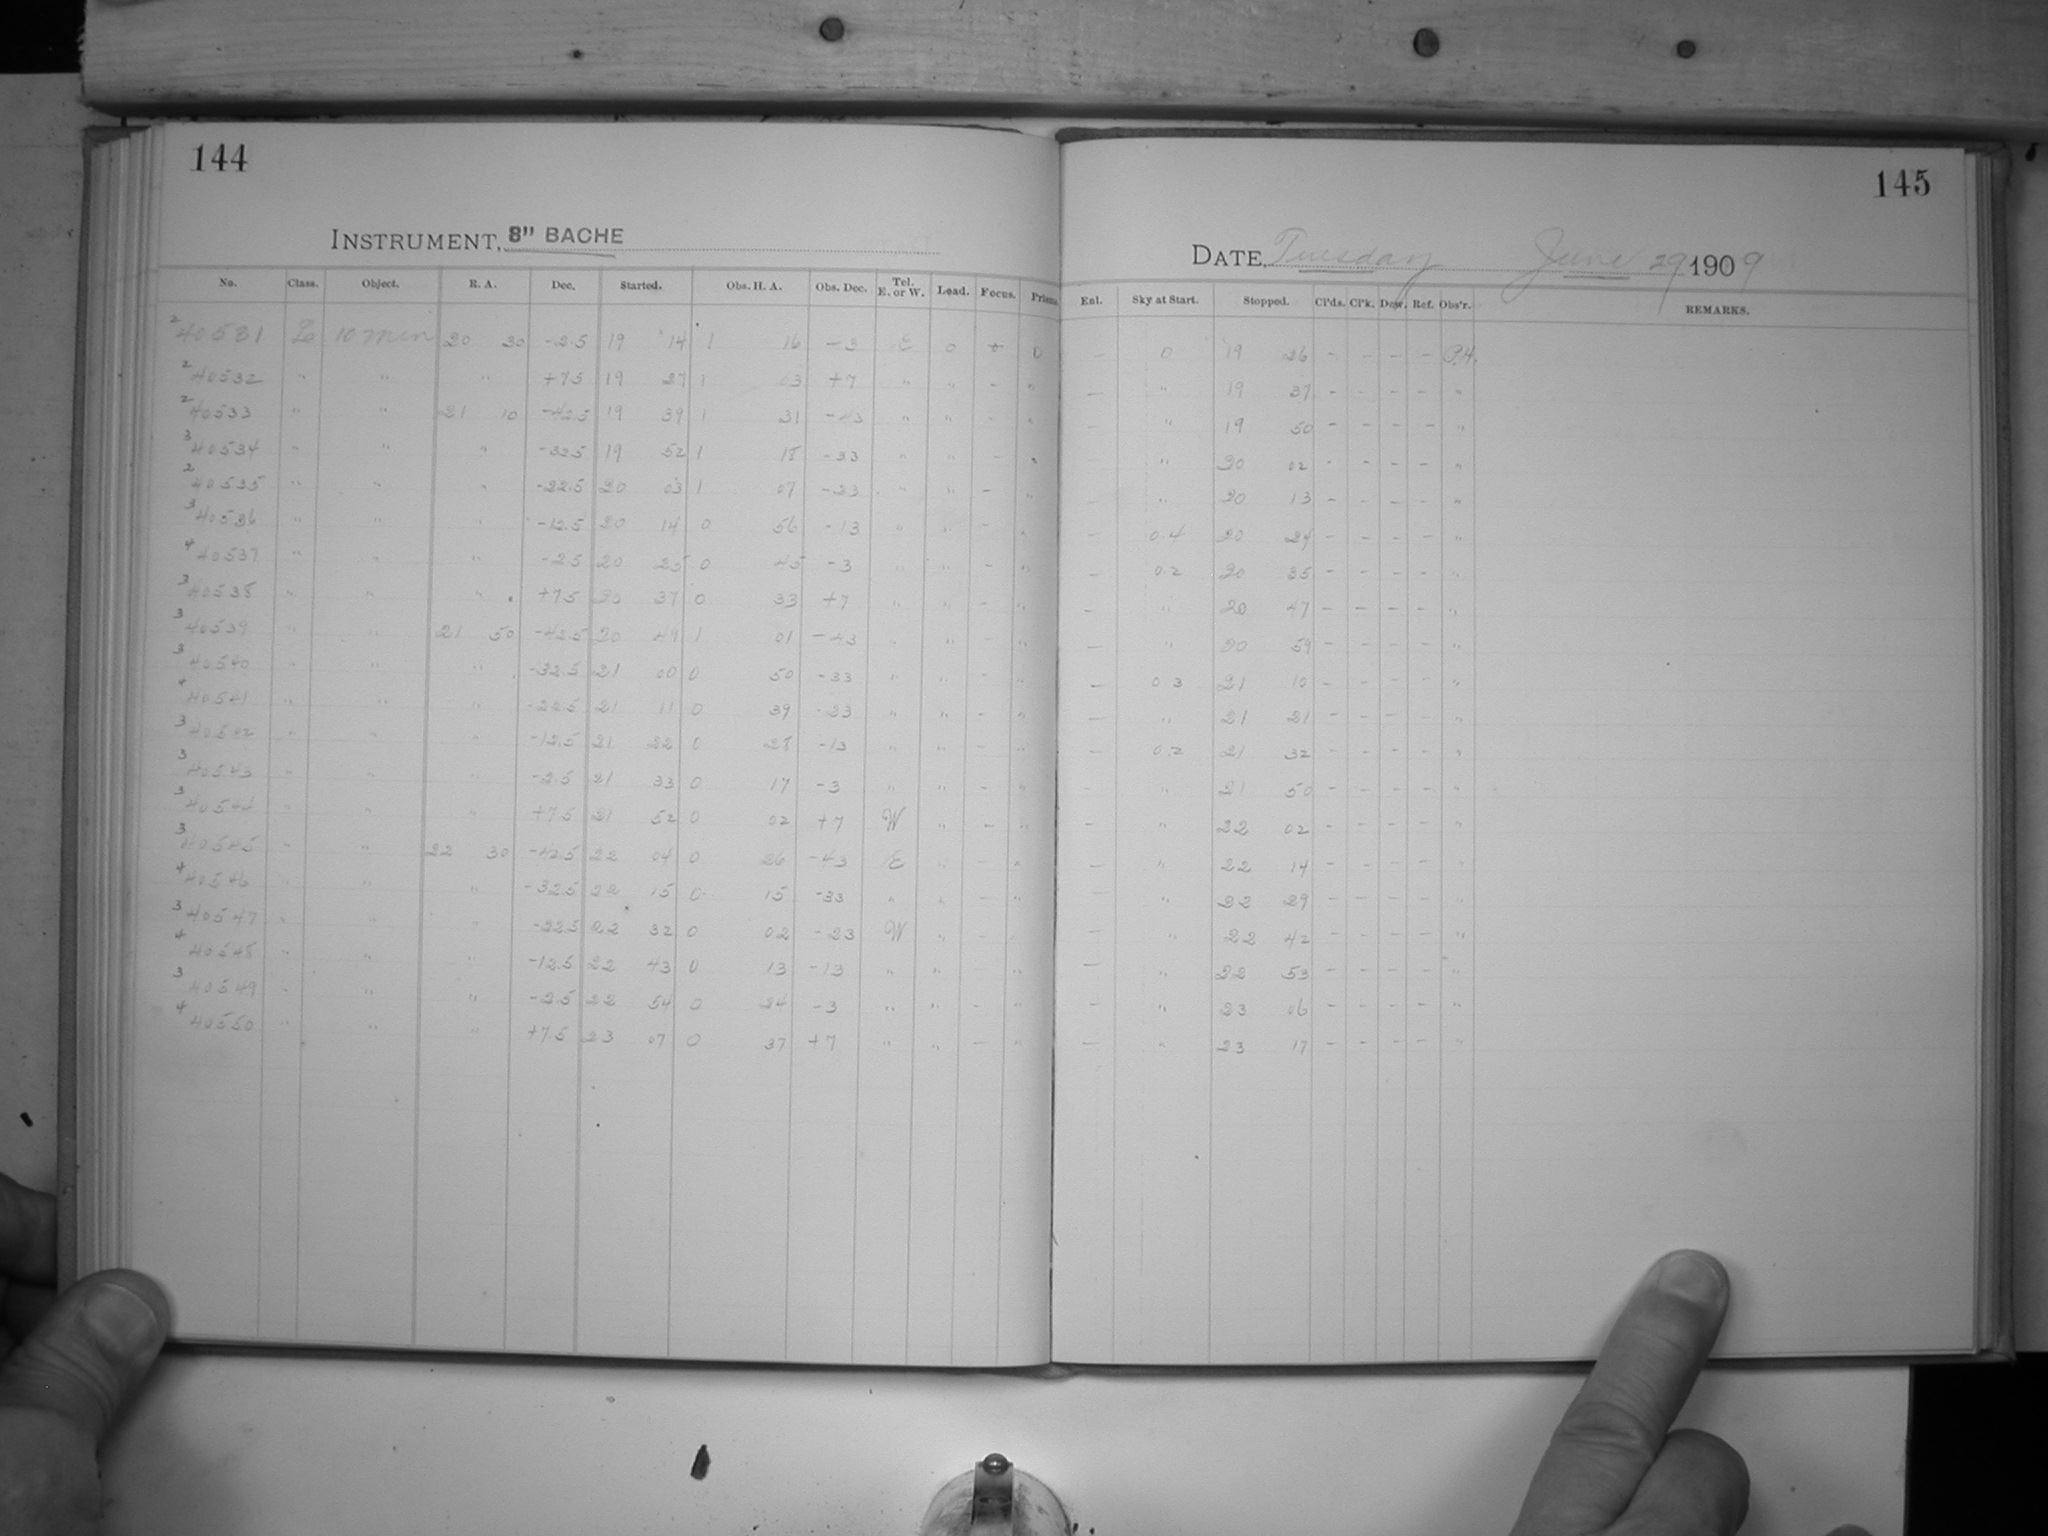 144
INSTRUMENT, 8" BACHE
No. Class. Object. R. A. Dec. Started. Obs. H. A. Obs. Dec. Tel. E. or W. Load. Focus. Prism.
2 40531 10 min 20 30 -2.5 19 14 1 16 -3 E 0 0
2 40532 " " " +7.5 19 27 1 03 +7 " " - "
2 40533 " " 21 10 -42.5 19 39 1 31 -43 " " - "
3 40534 " " " -32.5 19 52 1 18 -33 " " - "
2 40535 " " " -22.5 20 03 1 07 -23 " " - "
3 40536 " " " -12.5 20 14 0 56 -13 " " - "
4 40537 " " " -2.5 20 25 0 45 -3 " " - "
3 40538 " " " +7.5 20 37 0 33 +7 " " - "
3 40539 " " 21 50 -42.5 20 49 1 01 -43 " " - "
3 40540 " " " -32.5 21 00 0 50 -33 " " - "
4 40541 " " " -22.5 21 11 0 39 -23 " " - "
3 40542 " " " -12.5 21 22 0 28 -13 " " - "
3 40543 " " " -2.5 21 33 0 17 -3 " " - "
3 40544 " " " +7.5 21 52 0 02 +7 W " - "
3 40545 " " 22 30 -42.5 22 04 0 26 -43 E " - "
4 40546 " " " -32.5 22 15 0 15 -33 " " - "
3 40547 " " " -22.5 22 32 0 02 -23 W " - "
4 40548 " " " -12.5 22 43 0 13 -13 " " - "
3 40549 " " " -2.5 22 54 0 24 -3 " " - "
4 40550 " " " +7.5 23 07 0 37 +7 " " - "
145
DATE, Tuesday June 29 1909
Enl. Sky at Start. Stopped. Cl'ds. Cl'k. Dew. Ref. Obs'r. REMARKS.
- 0 19 26 - - - - P.H.
- " 19 37 - - - - "
- " 19 50 - - - - "
" 20 02 - - - - "
- " 20 13 - - - - "
- 0.4 20 24 - - - - "
- 0.2 20 35 - - - - "
- " 20 47 - - - - "
- " 20 59 - - - - "
- 0.3 21 10 - - - - "
- " 21 21 - - - - "
- 0.2 21 32 - - - - "
- " 21 50 - - - - "
- " 22 02 - - - - "
- " 22 14 - - - - "
- " 22 29 - - - - "
- " 22 42 - - - - "
- " 22 53 - - - - "
- " 23 06 - - - - "
- " 23 17 - - - - "